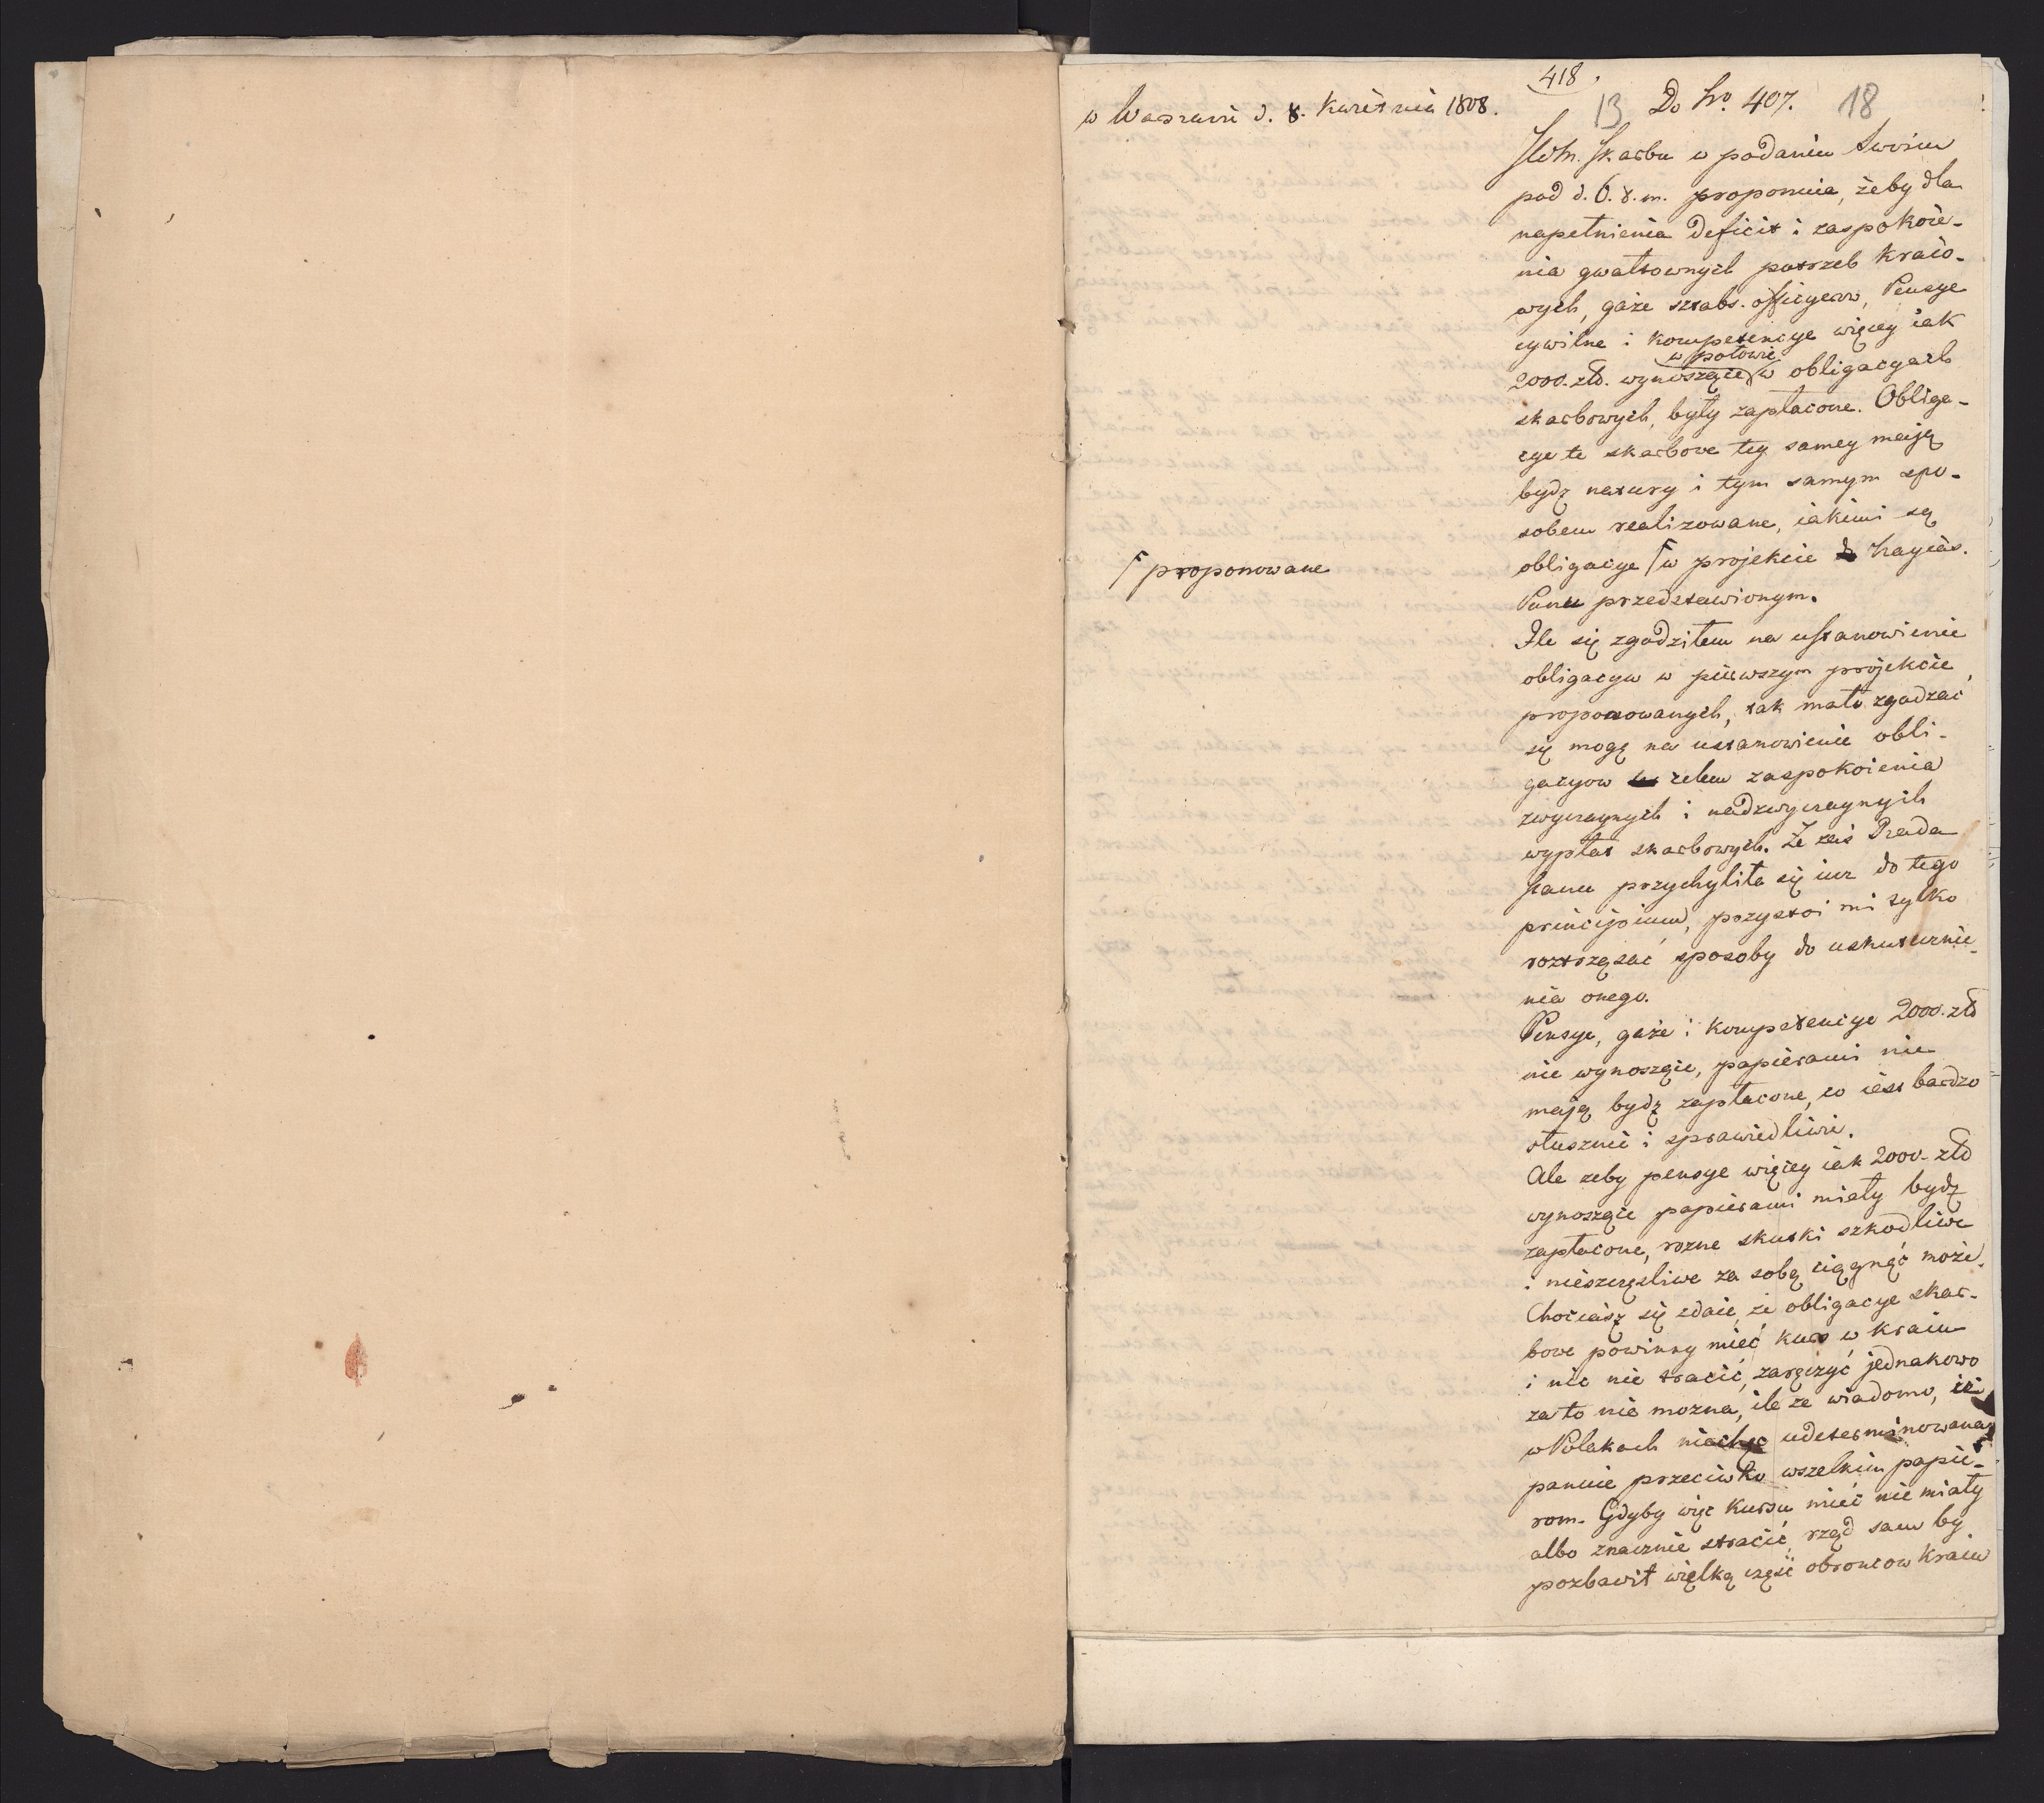 418.
w Warszawie d. 8. Kwietnia 1808.
13 Do No. 407. 18
Skarbu w podaniu swoim
pod d. 6. t. m. proponuie, żeby dla
napełnienia Deficit i zaspokoie-
nia gwałtownych potrzeb kraio-
wych, gaże sztabs-officyerów, Pensye
cywilne i kompetencye więcey iak
w połowie
2000. złt. wynoszące w obligacyach
skarbowych, były zapłacone. Obliga-
cye te skarbowe tey samey mają
bydz natury i tym samym spo-
sobem realizowane, iakimi są
obligacye ⌈ w projekcie Nayias.
⌈ proponowane
Panu przedstawionym.
Ile się zgodziłem na ustanowienie
obligacyw w pierwszym projekcie
proponowanych, tak mało zgadzać
się mogę na ustanowienie obli-
gacyow celem zaspokoienia
zwyczaynych i nadzwyczaynych
wypłat skarbowych. Że zaś Rada
Stanu przychyliła się iuż do tego
principium, przystoi mi tylko
roztrząsać sposoby do uskutecznie-
nia onego.
Pensye, gaże i kompetencye 2000. złt
nie wynoszące, papierami nie
mają bydz zapłacone, co iest bardzo
słusznie i sprawiedliwie.
Ale zeby pensye więcey iak 2000. złt
wynoszące papierami miały bydz
zapłacone, rozne skutki szkodliwe
i nieszczęsliwe za sobą ciągnąć może.
Chociasz się zdaie, że obligacye skar-
bowe powinny mieć kurs w kraiu
i nic nie tracić, zaręczyć jednakowo
za to nie mozna, ile ze wiadomo, iż
w Polakach niechęć udeterminowana
panuie przeciwko wszelkim papie-
rom. Gdyby więc kursu mieć nie miały
albo znacznie stracić, rząd sam by
pozbawił wielką część obroncow kraiu